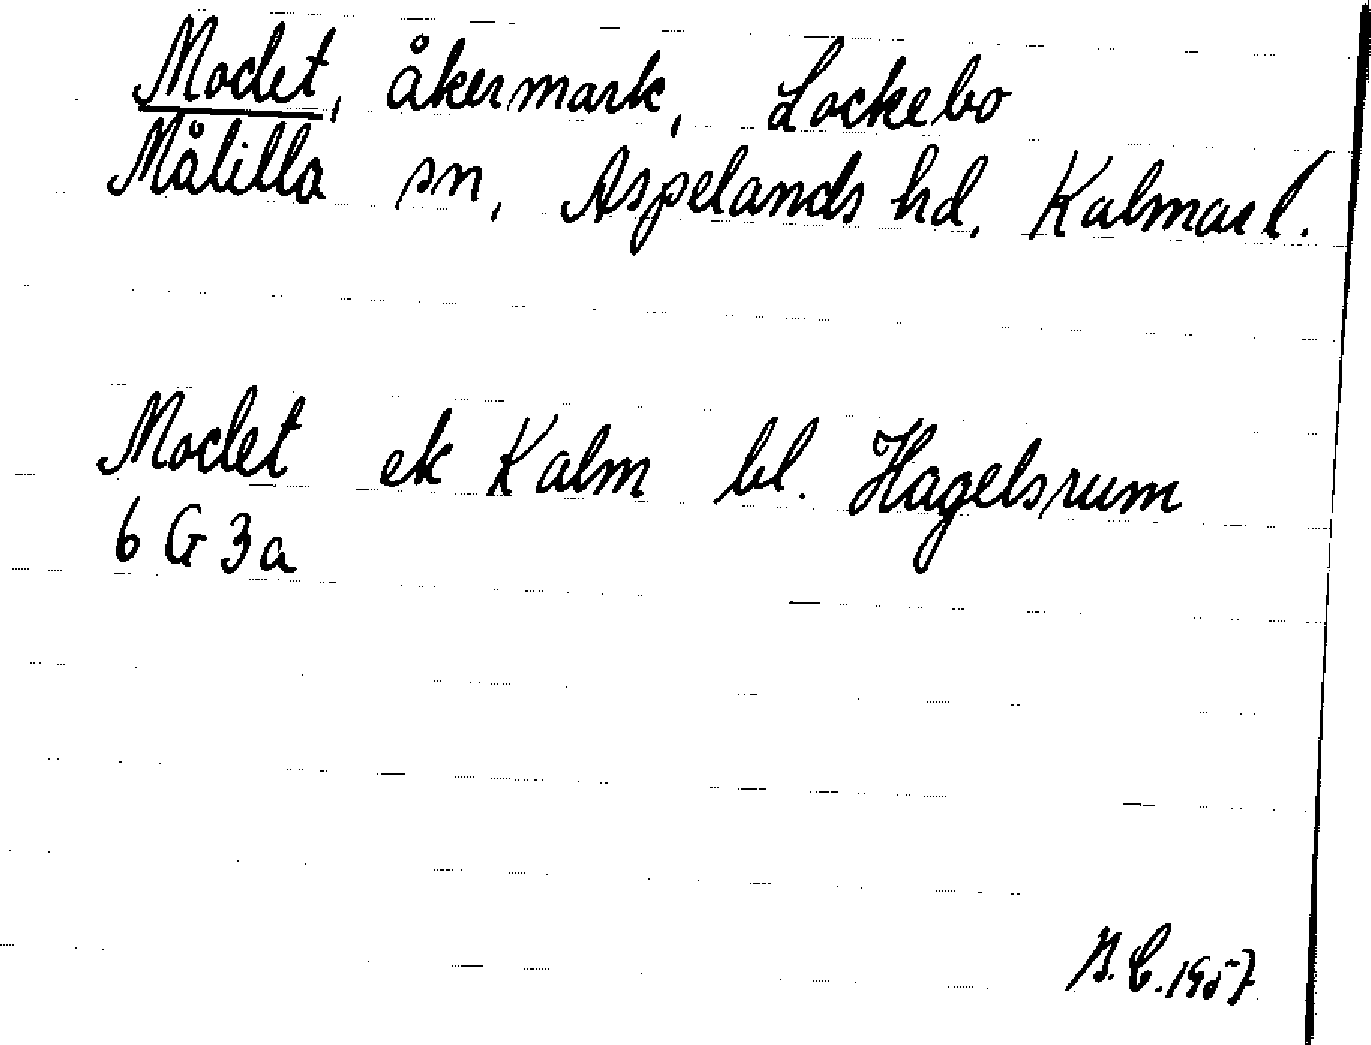 Modet, åkermark, Lockebo
Målilla sn, Aspelands hd, Kalmar l.
Modet ek Kalm bl. Hagelsrum
6 G 3a
1957